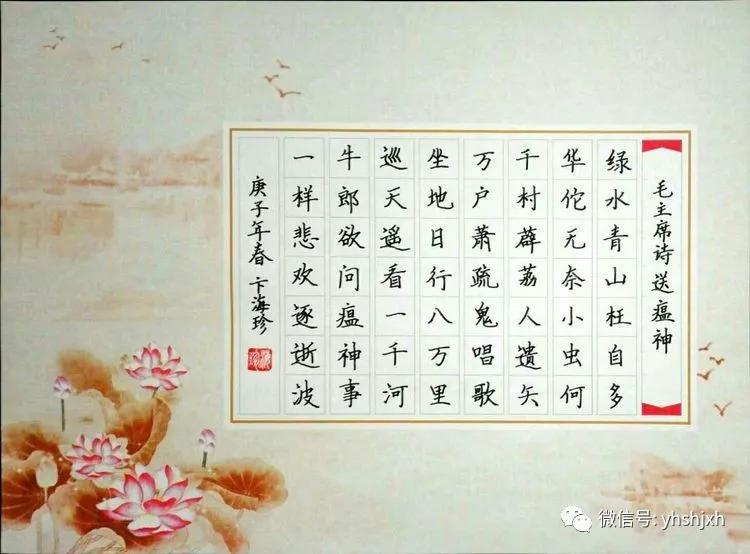 毛主席诗送瘟神
绿水青山枉自多
华佗无奈小虫何
千村薜荔人遗矢
万户萧疏鬼唱歌
坐地日行八万里
巡天遥看一千河
牛郎欲问瘟神事
一样悲欢逐逝波
庚子年春 卞海珍
微信号: yhshjxh